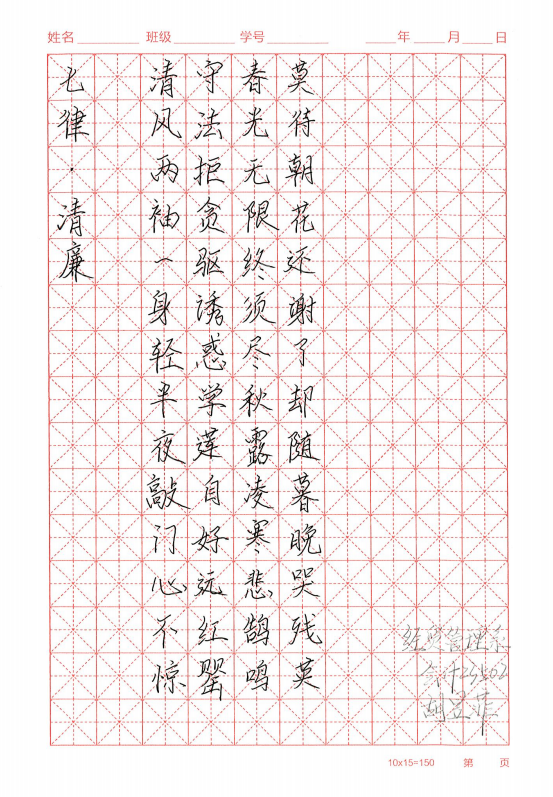 姓名 班级 学号 年 月 日
七律·清廉
清风两袖一身轻半夜敲门心不惊
守法拒贪驱诱惑学莲自好远红罂
春光无限终须尽秋露凌寒悲鹄鸣
莫待朝花还谢了却随暮晚哭残英
经贸管理系
会计
10x15=150 第 页